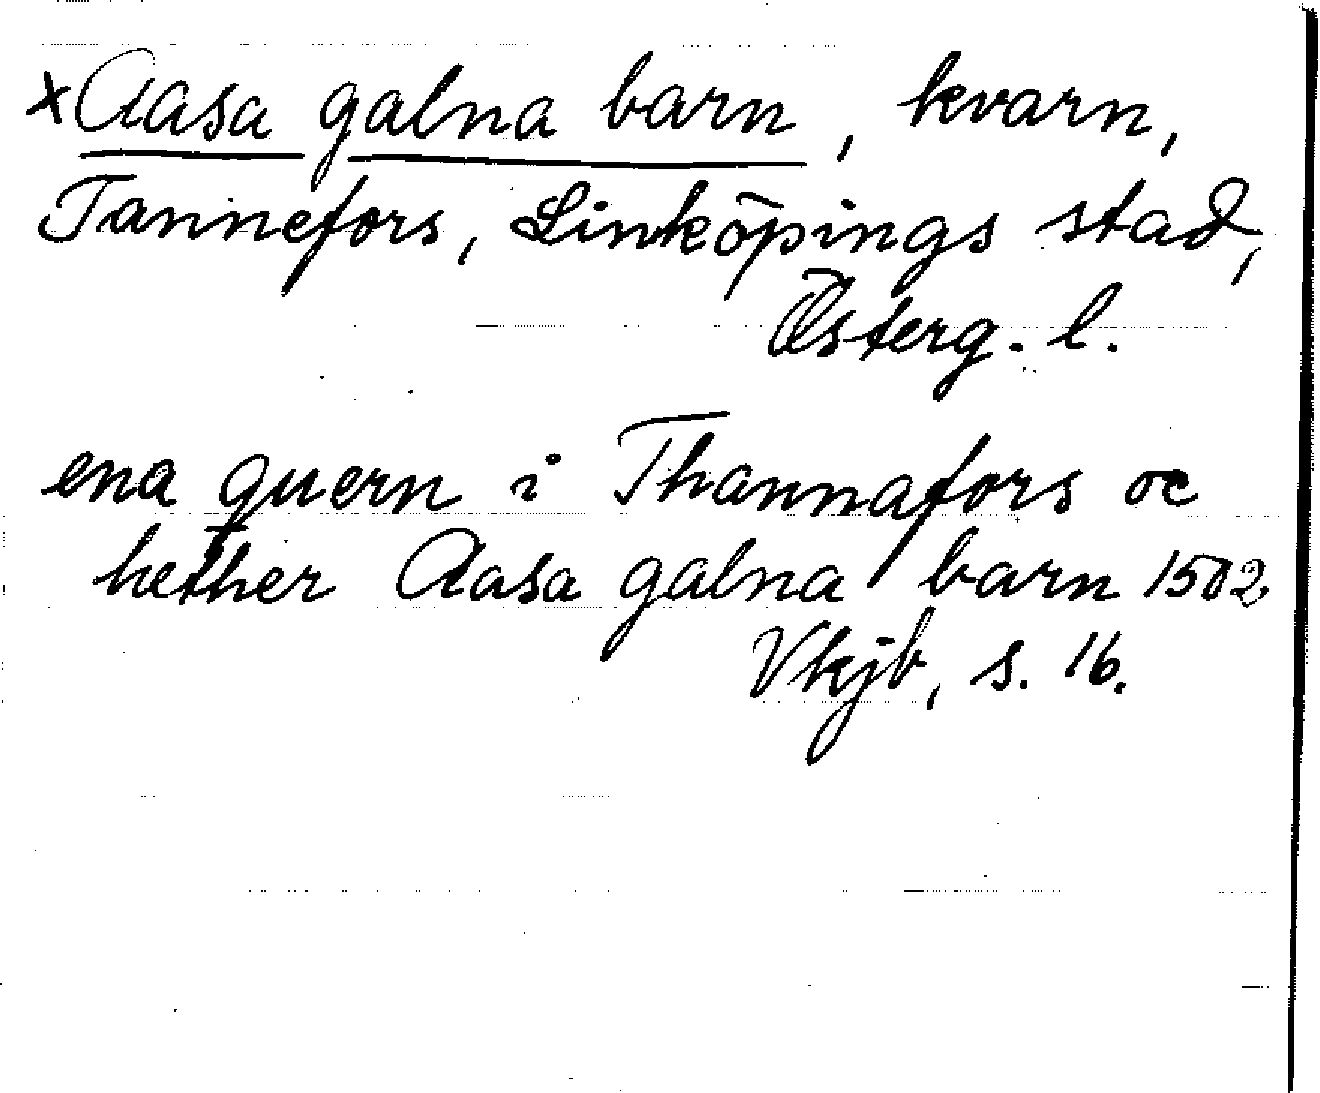 xAasa galna barn, kvarn,
Tannefors, Linköpings stad,
Österg. l.
ena quern i Thannafors oc
hether Aasa galna barn 1502
Vkjb, s. 16.